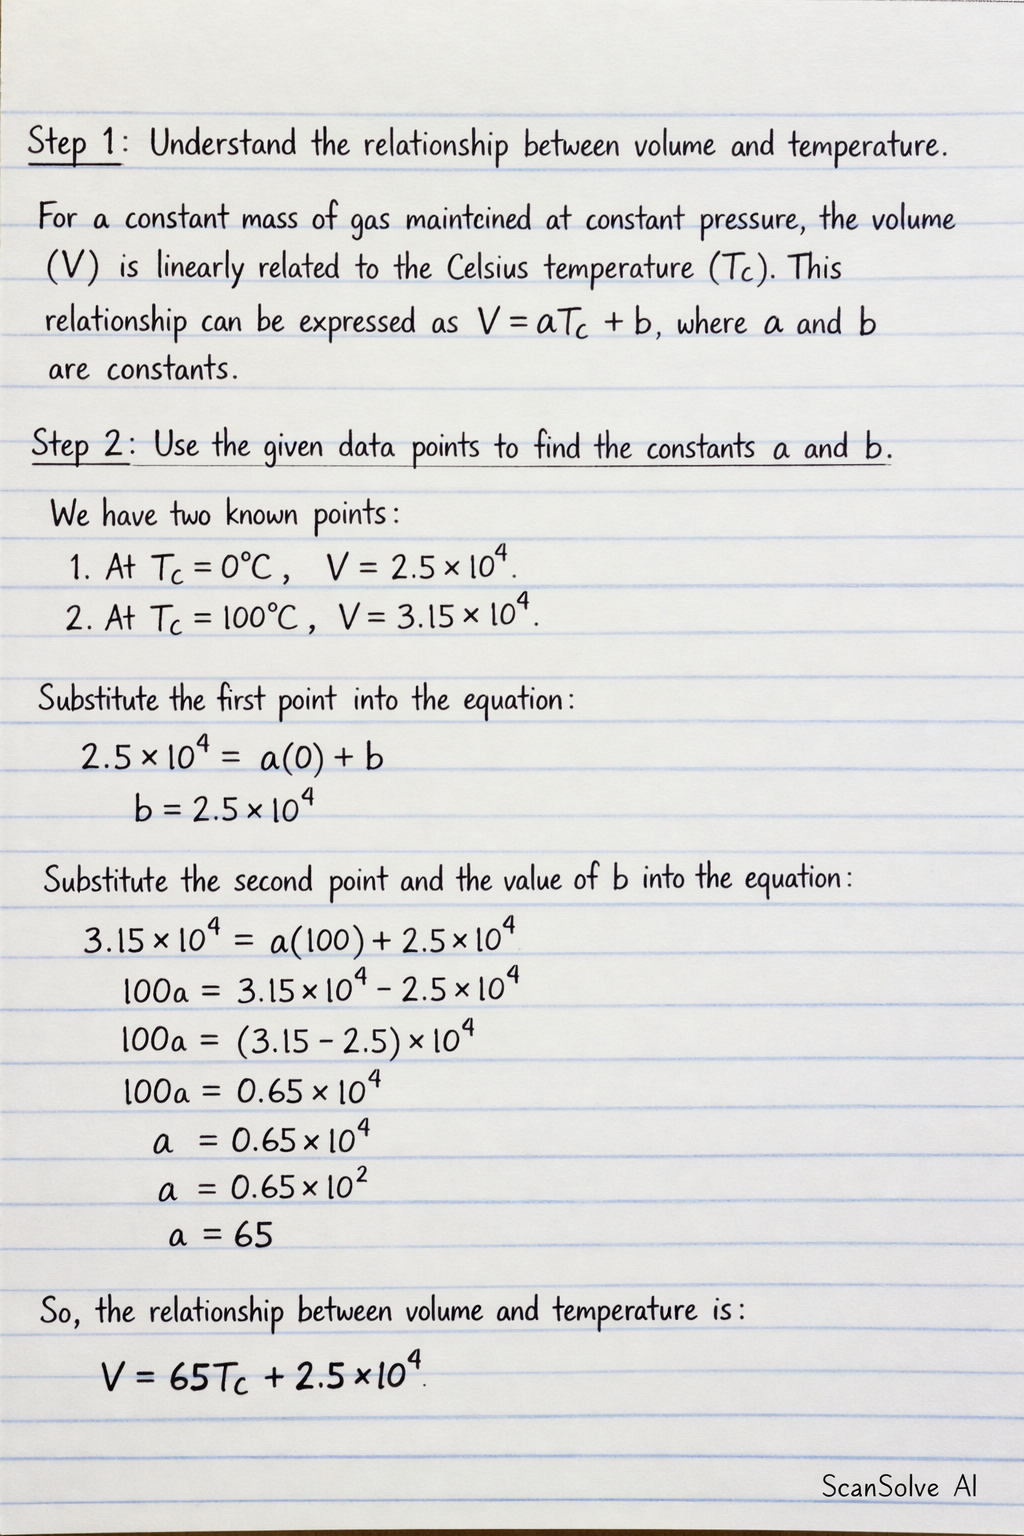 Step 1: Understand the relationship between volume and temperature.
For a constant mass of gas mainteined at constant pressure, the volume
(V) is linearly related to the Celsius temperature (Tc). This
relationship can be expressed as V = aTc + b, where a and b
are constants.
Step 2: Use the given data points to find the constants a and b.
We have two known points:
1. At Tc = 0°C, V = 2.5 × 10⁴.
2. At Tc = 100°C, V = 3.15 × 10⁴.
Substitute the first point into the equation:
2.5 × 10⁴ = a(0) + b
b = 2.5 × 10⁴
Substitute the second point and the value of b into the equation:
3.15 × 10⁴ = a(100) + 2.5 × 10⁴
100a = 3.15 × 10⁴ - 2.5 × 10⁴
100a = (3.15 - 2.5) × 10⁴
100a = 0.65 × 10⁴
a = 0.65 × 10⁴
a = 0.65 × 10²
a = 65
So, the relationship between volume and temperature is:
V = 65Tc + 2.5 × 10⁴.
ScanSolve AI